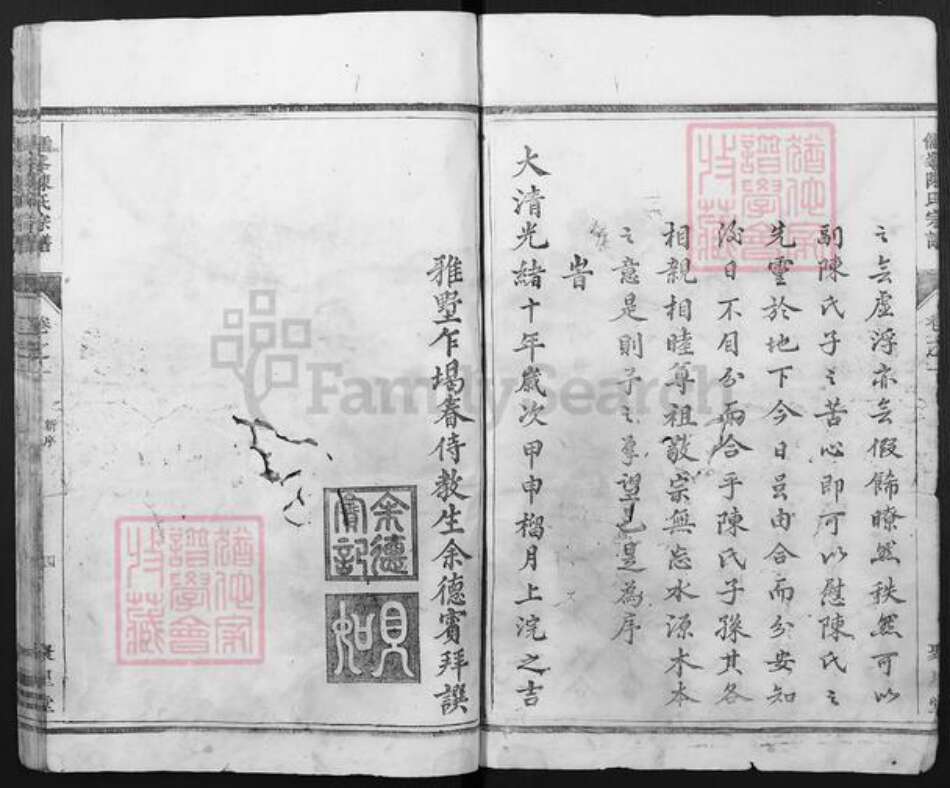 之無虛浮亦無假飾瞭然秩然可以
副陳氏子之苦心即可以慰陳氏之
先靈於地下今日虽由合而分安知
後日不因分而合乎陳氏子孫其各
相親相睦尊祖敬宗無忘水源木本
之意是則予之厚望已是為序
旹
大清光緒十年歲次甲申榴月上浣之吉
雅墅乍場眷侍教生余德賓拜譔
余德
賓記
陳氏宗譜
卷之一
新序
四
聚
堂
猶他家
譜學會
收藏
猶他家
譜學會
收藏
FamilySearch